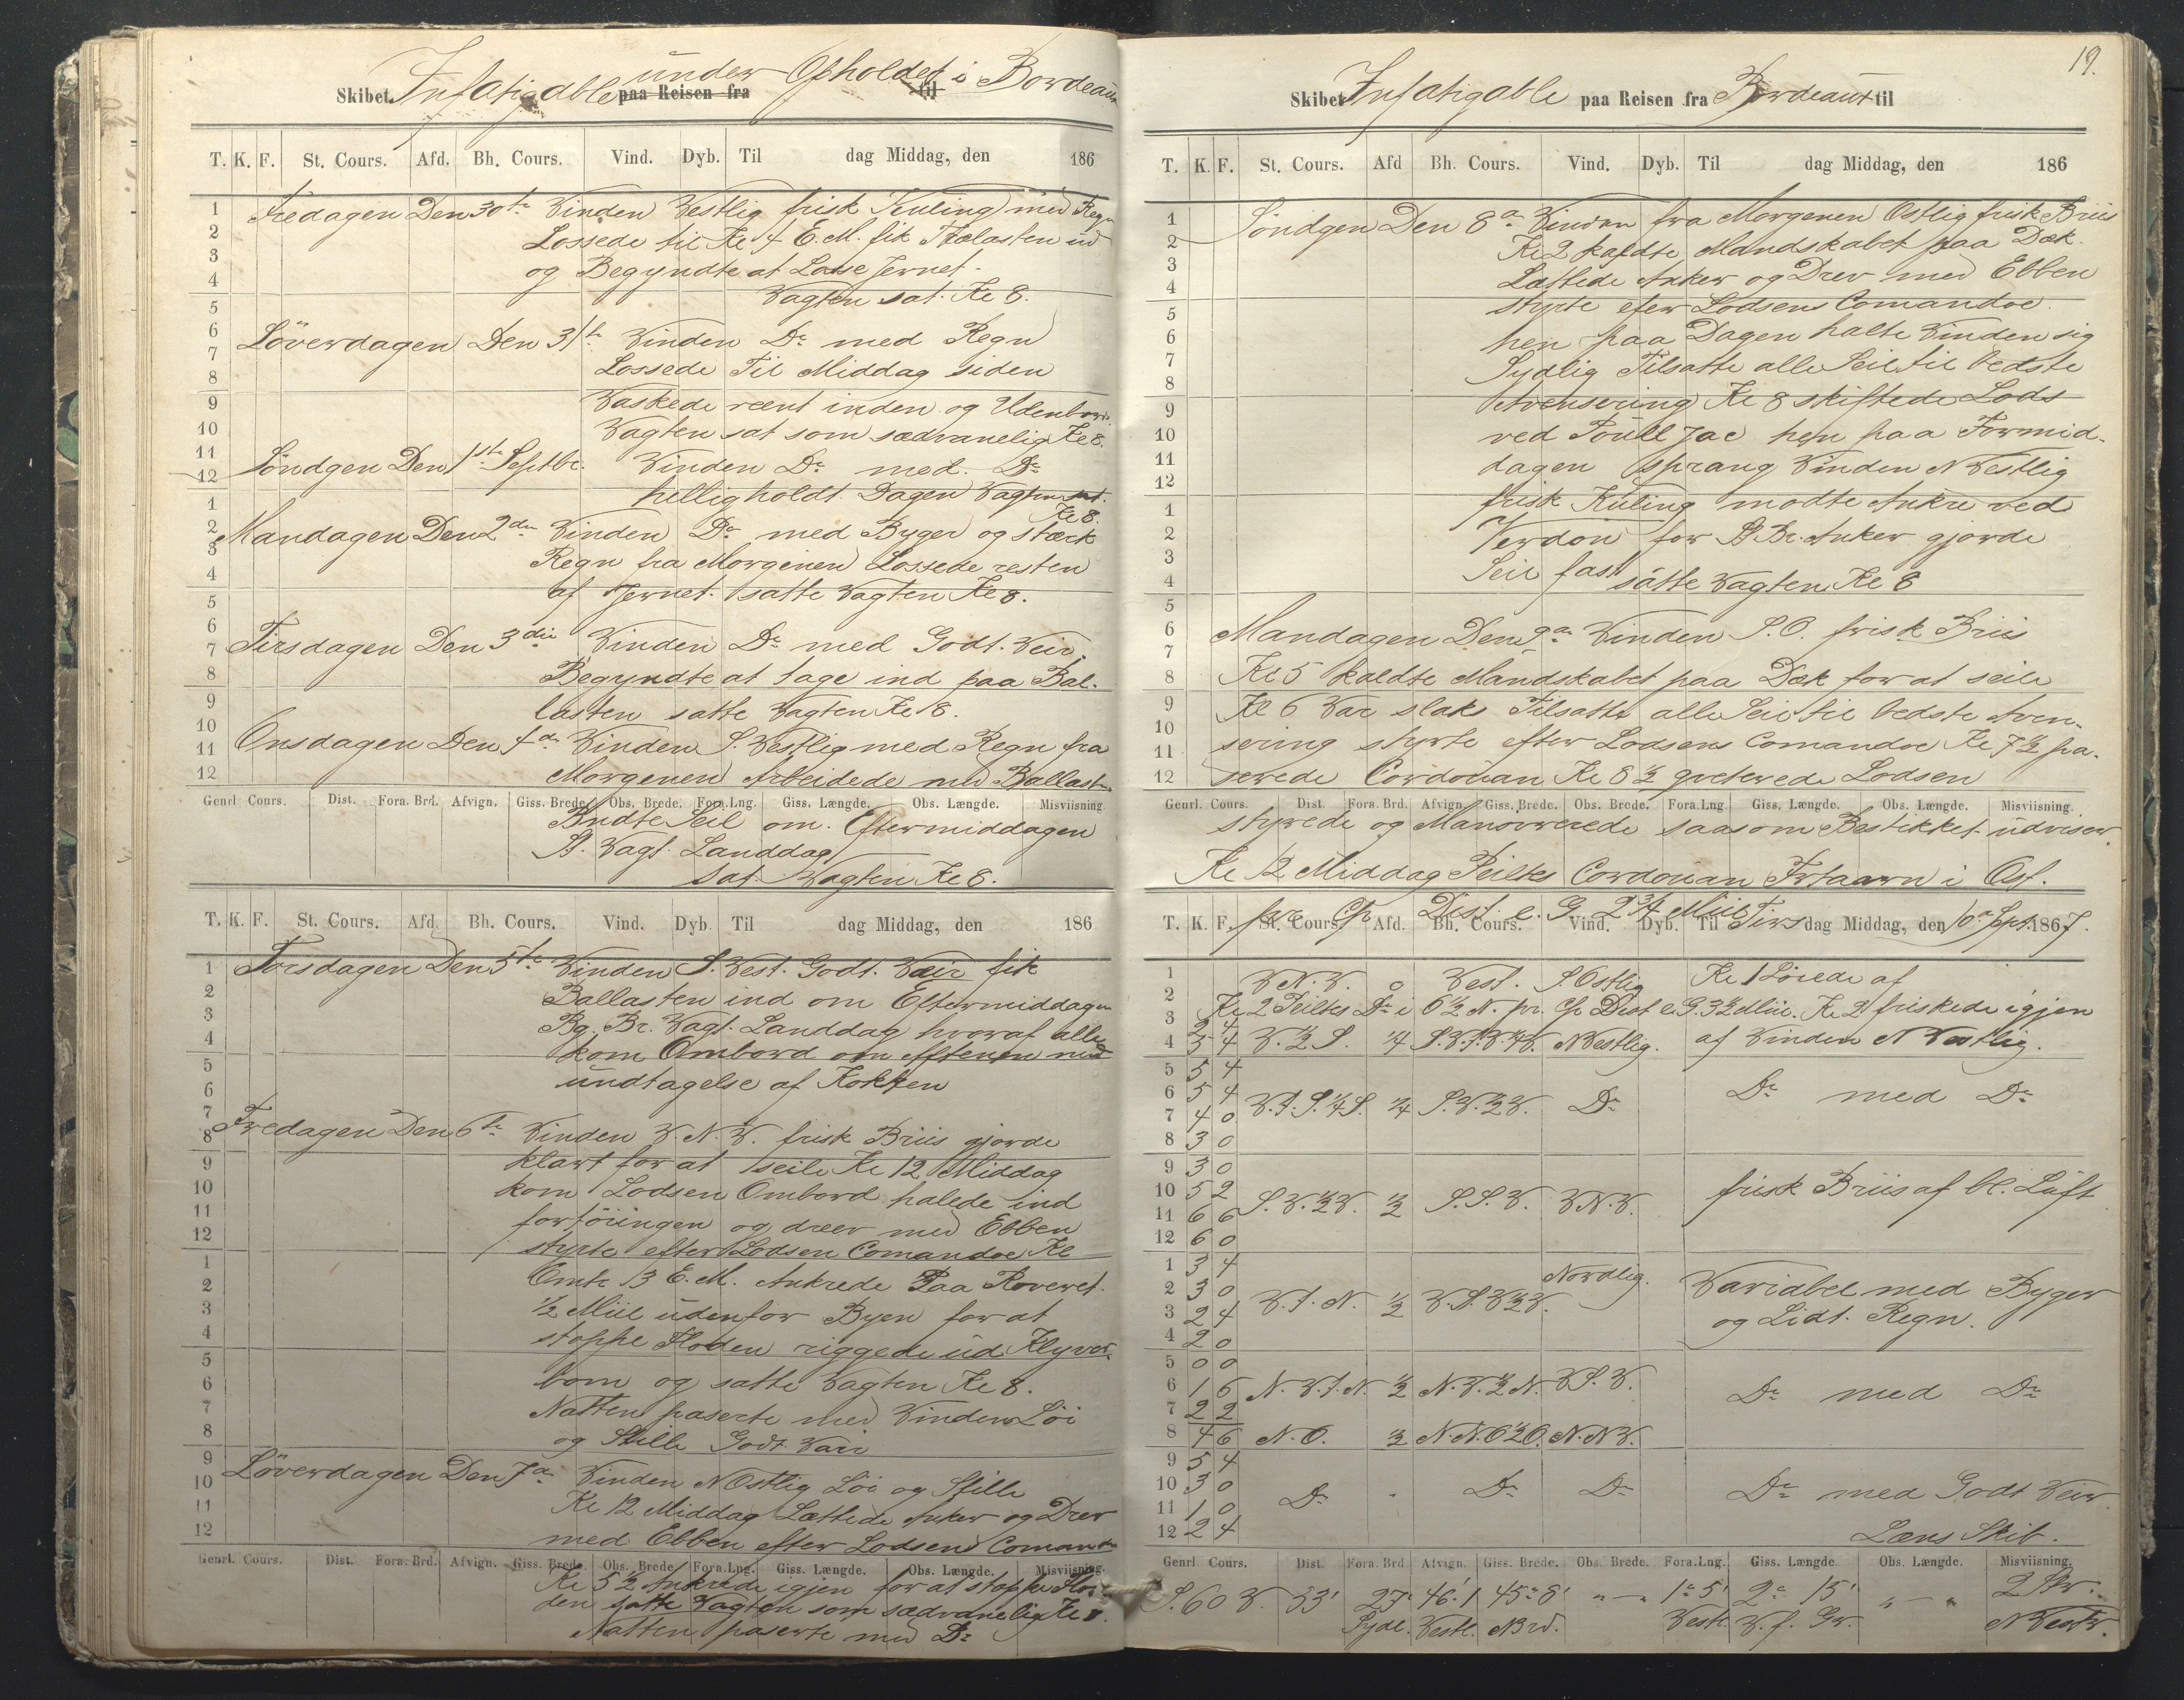 Skibet Infatigable under Opholdet i Bordeaux
paa Reisen fra til
T. K. F. St. Cours. Afd. Bh. Cours. Vind. Dyb. Til dag Middag, den 186
Fredagen Den 30te Vinden Vestlig frisk Kuling med Regn
Lossede til Kl 4 E.M. fik Trælasten ud
og Begyndte at Losse Jernet.
Vagten sat. Kl 8.
Löverdagen Den 31te Vinden Do med Regn
Lossede Til Middag siden
Vaskede reent inden og Udenbors.
Vagten sat som sædvanelig Kl 8.
Söndgen Den 1ste Septbr. Vinden Do med. Do
helligholdt Dagen Vagten sat.
Kl 8.
Mandagen Den 2den Vinden Do med Byger og stærk
Regn fra Morgenen Lossede resten
af Jernet. satte Vagten Kl 8.
Tirsdagen Den 3die Vinden Do med Godt. Veir.
Begyndte at tage ind paa Bal-
lasten satte Vagten Kl 8.
Onsdagen Den 4de Vinden S. Vestlig med Regn fra
Morgenen Arbeidede med Ballasten
Genrl Cours. Dist. Fora. Brd. Afvign. Giss. Brede. Obs. Brede. Fora.Lng. Giss. Længde. Obs. Længde. Misviisning
Bndte Seil om. Eftermiddagen
St. Vagt. Landdag
Sat. Vagten Kl 8.
T. K. F. St. Cours. Afd. Bh. Cours. Vind. Dyb. Til dag Middag, den 186
Torsdagen Den 5te Vinden S. Vest. Godt. Væir fik
Ballasten ind om Eftermiddagen
Bg. Br. Vagt. Landdag hvoraf alle
kom Ombord om eftenen med
undtagelse af Kokken
Fredagen Den 6te Vinden V.N.V. frisk Briis gjorde
klart for at seile Kl 12 Middag
kom Lodsen Ombord halede ind
fortöiingen og drev med Ebben
styrte efter Lodsen Comandoe Kl
Omtr 3 E.M. Ankrede Paa Reveret.
½ Miil udenfor Byen for at
stoppe Floden riggede ud Klyver-
bom og satte Vagten Kl 8.
Natten paserte med Vinden Löi
og Stille Godt Vair
Löverdagen Den 7de Vinden N Ostlig Löi og Stille
Kl 12 Middag Lættede Anker og Drev
med Ebben efter Lodsens Comando
Genrl. Cours. Dist. Fora. Brd. Afvign. Giss. Brede. Obs. Brede. Fora.Lng. Giss. Længde. Obs. Længde. Misviisning.
Kl 5½ Ankrede igjen for at stoppe Flo-
den satte Vagten som sædvanelig Kl 8.
Natten paserte med Do
19.
Skibet Infatigable paa Reisen fra Bordeaux til
T. K. F. St. Cours. Afd Bh. Cours. Vind. Dyb. Til dag Middag, den 186
Söndgen Den 8de Vinden fra Morgenen Ostlig frisk Briis
Kl 2 kaldte Mandskabet paa Dæk.
Lættede Anker og Drev med Ebben
styrte efter Lodsens Comandoe.
hen paa Dagen halte Vinden sig
Sydlig Tilsatte alle Seil til bedste
Avensering Kl 8 skiftede Lods
ved Poull Jac hen paa Formid-
dagen sprang Vinden N Vestlig
frisk Kuling modte Ankre ved
Verdon for St Br. Anker gjorde
Seil fast satte Vagten Kl 8
Mandagen Den 9de Vinden S.O. frisk Briis
Kl 5 kaldte Mandskabet paa Dæk for at seile
Kl 6 Var slak Tilsatte alle Seil til bedste Aven-
sering styrte efter Lodsens Comandoe Kl 7½ pa-
serede Cordouan Kl 8½ qviterede Lodsen
Genrl. Cours. Dist. Fora. Brd. Afvign. Giss. Brede. Obs. Brede. Fora.Lng. Giss. Længde. Obs. Længde. Misviisning.
styrede og Manovrerede saasom Bestikket udviser.
Kl 12 Middag Peiltes Cordouan Frtaarn i Ost.
pr. Cp Dist. e. G. 2¾ Miil
T. K. F. St. Cours. Afd. Bh. Cours. Vind. Dyb. Til Tirsdag Middag, den 10de Sept. 1867.
V.N.V. 0 Vest. S. Ostlig Kl 1 Löiede af
Kl 2 Peiltes Do i O½N. pr. Cp Dist e. G. 3½ Miil. Kl 2 friskede igjen
2 4
3 4 V.½S. ¼ S.V.t.V.¼V. N Vestlig. af Vinden N Vestlig.
5 4
5 4 V.t.S.¼S. ¼ S.V.½V. Do Do med Do
4 0
3 0
3 0
5 2 S.V.½V. ½ S.S.V. V.N.V. frisk Briis af bl. Luft
6 6
6 0
3 4
3 0 V.t.N. ½ V.S.V½V. Nordlig. Variabel med Byger
2 4 og Lidt. Regn.
2 0
0 0
1 6 N.V.t.N. ½ N.V.½N. V.S.V. Do med Do
2 2
4 6 N.O. ½ N.N.O½O. N.N.V.
5 4
3 0 Do " Do Do Do med Godt Veir.
1 0
2 4 Læns Skib.
Genrl. Cours. Dist. Fora. Brd Afvign. Giss. Brede. Obs. Brede. Fora.Lng. Giss. Længde. Obs. Længde. Misviisning.
S. 60 V. 33' 27' 46'.1 45° 8' " — " 1° 5' 2° 15' " — " 2 Str.
Sydl. Vestl. N Brd. Vestl. V. f. Gr. N Vestr.